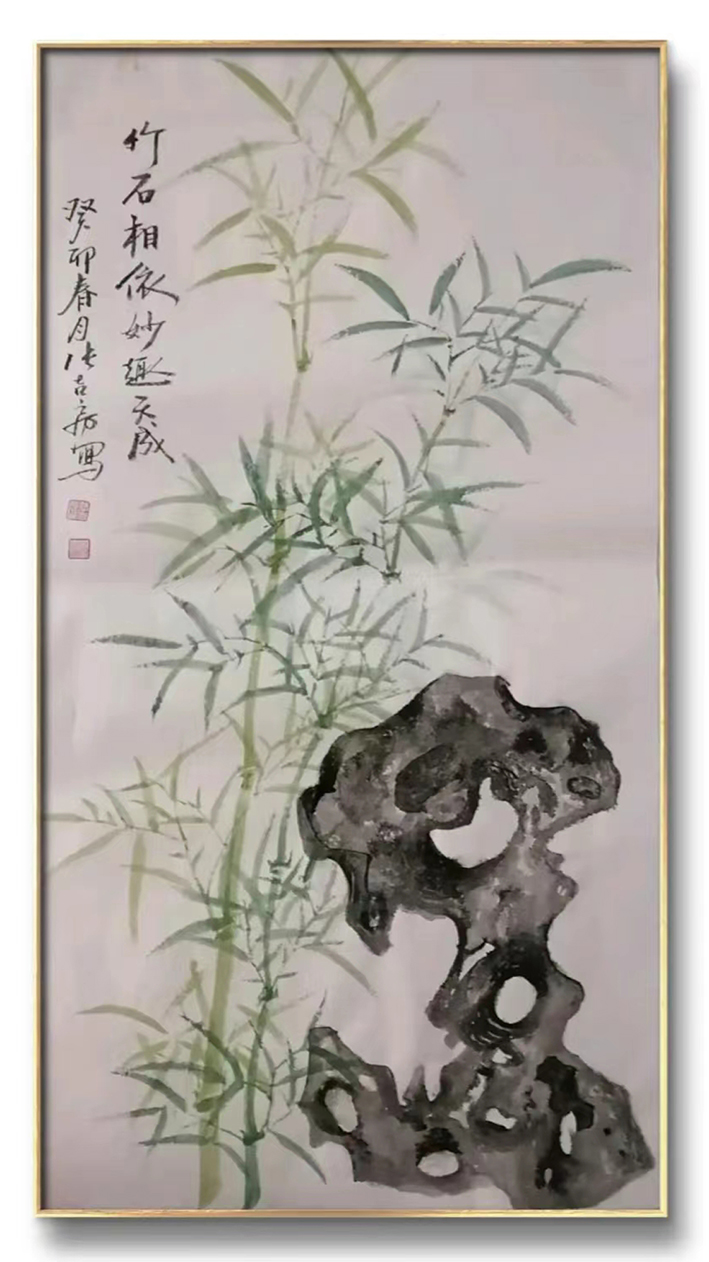 竹石相依妙趣天成
癸卯春月张吉磊写